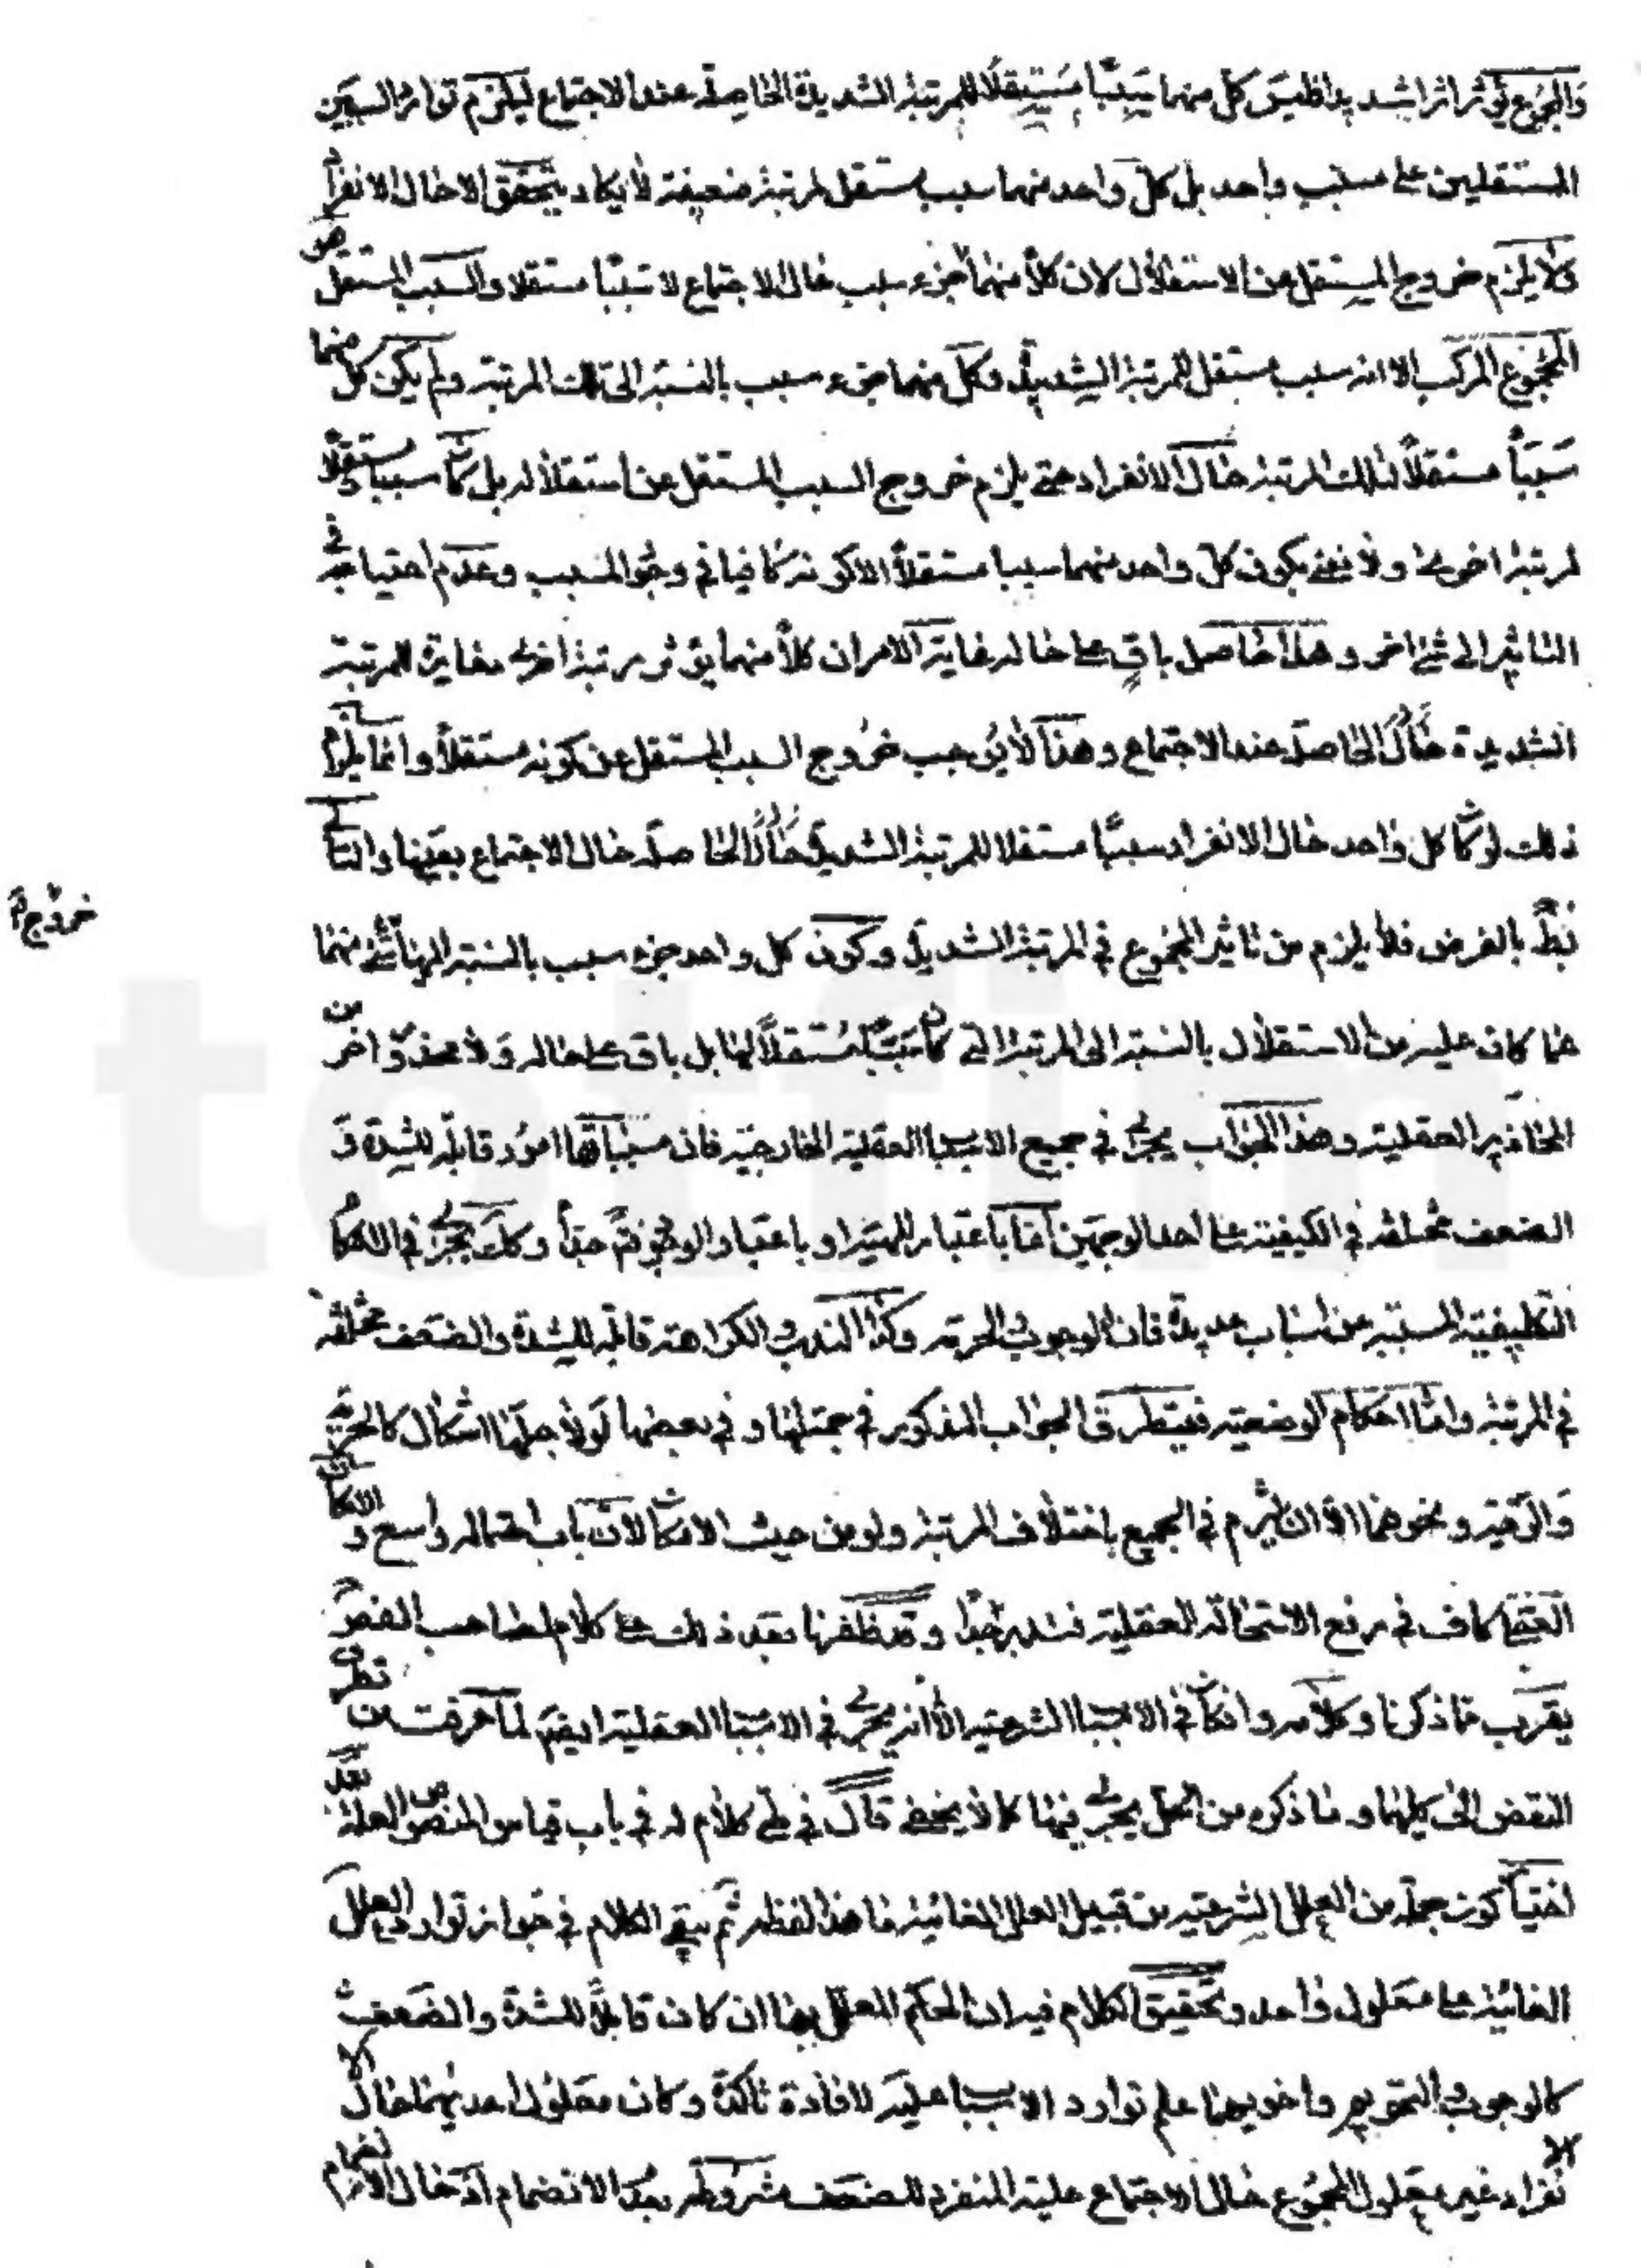 والمجموع يؤثر اثرا شديدا فليس كل منهما سببا مستقلا للمرتبة الشديدة الحاصلة عند الاجتماع ليلزم توارد السببين
المستقلين على مسبب واحد بل كل واحد منهما سبب مستقل لمرتبة ضعيفة لا يكاد يتحقق الا حال الانفراد
ولا يلزم خروج المستقل عن الاستقلال لان كلا منهما جزء سبب حال الاجتماع لا سببا مستقلا والسبب المستقل هو
المجموع المركب الا انه سبب مستقل للمرتبة الشديدة وكل منهما جزء سبب بالنسبة الى تلك المرتبة ولم يكن كل منهما
سببا مستقلا لتلك المرتبة حال الانفراد حتى يلزم خروج السبب المستقل عن استقلاله بل كان سببا مستقلا
لمرتبة اخرى ولا نعنى بكون كل واحد منهما سببا مستقلا الا كونه كافيا في وجود المسبب وعدم احتياجه في
التاثير الى شئ اخر وهذا حاصل باق على حاله غاية الامر ان كلا منهما يؤثر مرتبة اخرى مغايرة للمرتبة
الشديدة حال الحاصلة عند الاجتماع وهذا لا يوجب خروج السبب المستقل عن كونه مستقلا وانما يلزم
ذلك لو كان كل واحد حال الانفراد سببا مستقلا للمرتبة الشديدة الحاصلة حال الاجتماع بعينها والتالي
بط بالفرض فلا يلزم من تاثير المجموع في المرتبة الشديدة وكون كل واحد جزء سبب بالنسبة اليها شئ منهما
خروج
عما كان عليه من الاستقلال بالنسبة الى المرتبة التي كان سببا مستقلا لها بل باق على حاله ولا محذور اخر من
المحاذير العقلية وهذا الجواب يجرى في جميع الاسباب العقلية الخارجية فان مسبباتها امور قابلة للشدة و
الضعف مختلفة في الكيفية على احد الوجهين اما باعتبار المهية او باعتبار الوجود فتم جدا وكك يجرى في الاحكام
التكليفية المسببة عن اسباب عديدة فان الوجوب والحرمة وكذا الندب والكراهة قابلة للشدة والضعف مختلفة
في المرتبة واما احكام الوضعية فيتطرق الجواب المذكور في جملتها وفي بعضها لولا جلها اشكال كالحرية
والرقية ونحوهما الا ان يلتزم في الجميع باختلاف المرتبة ولو من حيث الامكان لان باب احتماله واسع والامكان
العقلى كاف في رفع الاستحالة العقلية فتدبر جدا وقد ظفرنا بعد ذلك على كلام لصاحب الفصول
يقرب مما ذكرنا وكلامه وان كان في الاسباب الشرعية الا انه يجرى في الاسباب العقلية ايضا لما عرفت من تطرق
النقض الى كليهما وما ذكره من الحل يجرى فيهما كما لا يخفى قال في طى كلام له في باب قياس المنصوص العلة بعد
اختيار كون جملة من العلل الشرعية من قبيل العلل الغائية ما هذا لفظه ثم يبقى الكلام في جواز توارد العلل
الغائية على معلول واحد وتحقيق الكلام فيه ان الحكم المعلل بها ان كان قابلا للشدة والضعف
كالوجوب والتحريم واخويهما علم توارد الاسباب عليه لافادة تاكده وكان معلول احديهما حال الا
نفراد غير معلول المجموع حال الاجتماع علية المنفرد للضعف مشروطة بعدم الانضمام اذ حال الانضمام